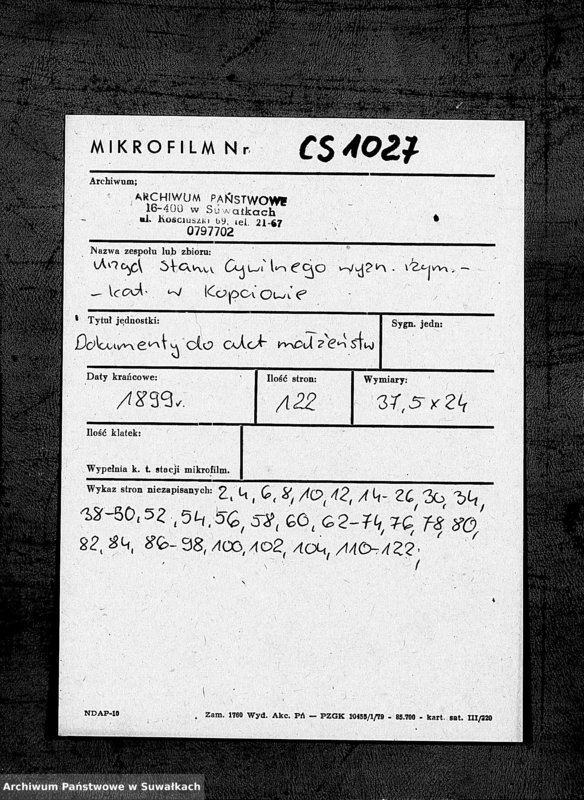 MIKROFILM Nr CS 1027
Archiwum;
ARCHIWUM PAŃSTWOWE
16-400 w Suwałkach
ul. Kościuszki 69, tel. 21-67
0797702
Nazwa zespołu lub zbioru:
Urząd Stanu Cywilnego wyzn. rzym.-
-kat. w Kopciowie
Tytuł jednostki:
Sygn. jedn:
Dokumenty do akt małżeństw
Daty krańcowe:
Ilość stron:
Wymiary:
1899r.
122
37,5 x 24
Ilość klatek:
Wypełnia k. t. stacji mikrofilm.
Wykaz stron niezapisanych: 2, 4, 6, 8, 10, 12, 14-26, 30, 34,
38-50, 52, 54, 56, 58, 60, 62-74, 76, 78, 80,
82, 84, 86-98, 100, 102, 104, 110-122;
NDAP-10
Zam. 1760 Wyd. Akc. Pń — PZGK 10455/1/79 - 85.700 - kart. sat. III/220
Archiwum Państwowe w Suwałkach